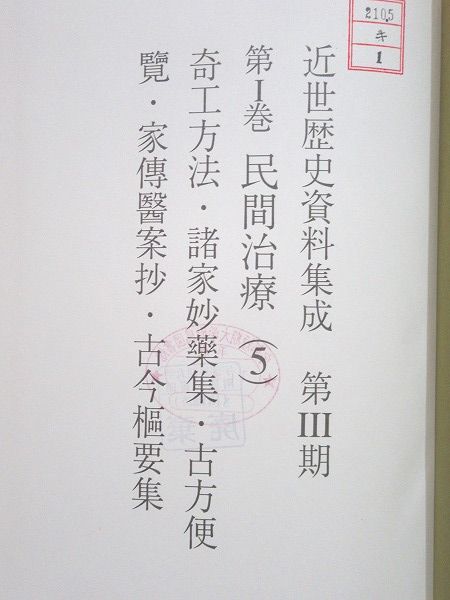 近世歴史資料集成 第III期
第I巻 民間治療(5)
奇工方法・諸家妙藥集・古方便
覽・家傳醫案抄・古今樞要集
210.5
キ
1